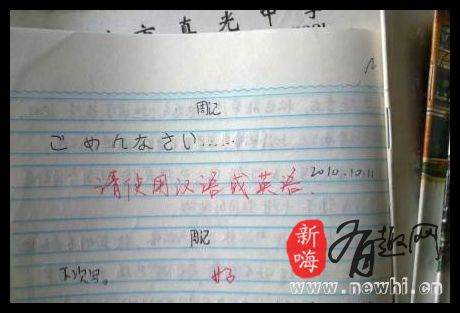 市真光中学
周记
ごめんなさい……
请使用汉语或英语. 2010.10.11
周记
下次写。 好
新嗨 有趣网
www.newhi.cn